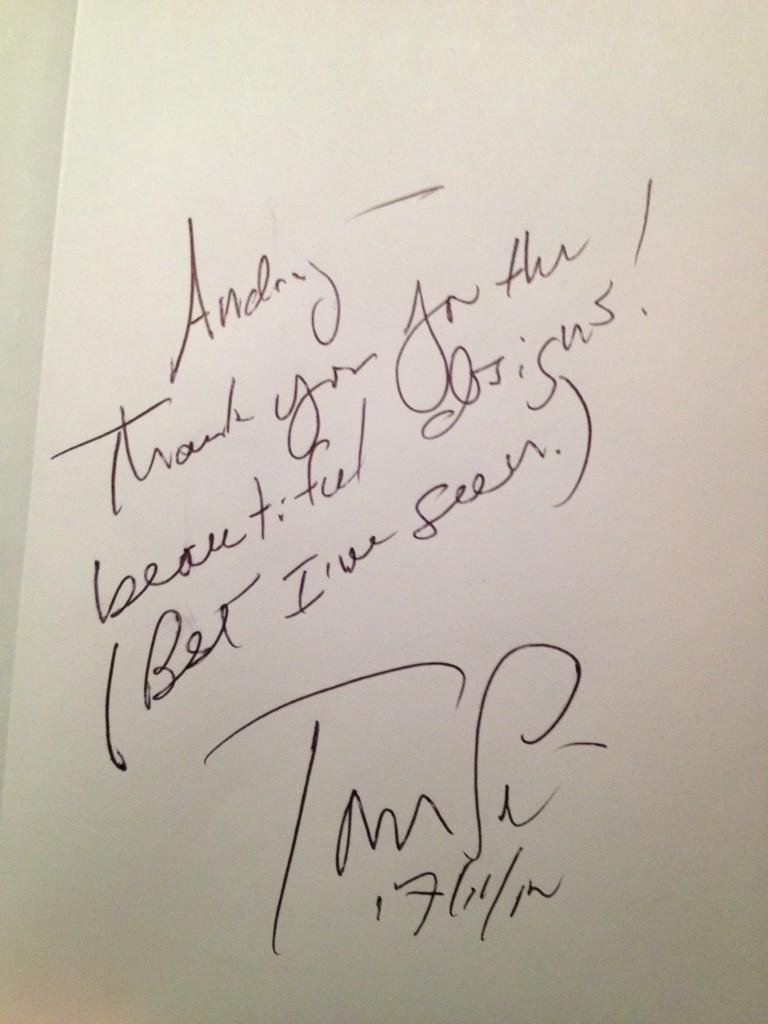 Andrij —
Thank you for the
beautiful designs!
(Best I've seen.)
17/11/12